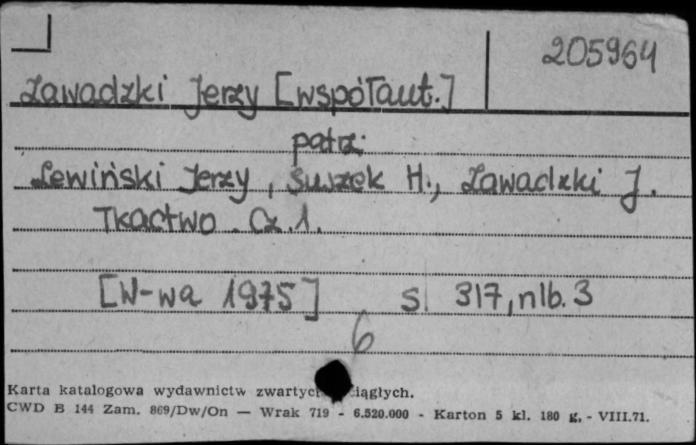 205964
Zawadzki Jerzy [współaut.]
patrz:
Lewiński Jerzy, Suszek H., Zawadzki J.
Tkactwo. Cz.1.
[W-wa 1975] s 317, nlb. 3
6
Karta katalogowa wydawnictw ciągłych.
CWD B 144 Zam. 869/Dw/On — Wrak 719 - 6.520.000 - Karton 5 kl. 180 g, - VIII.71.